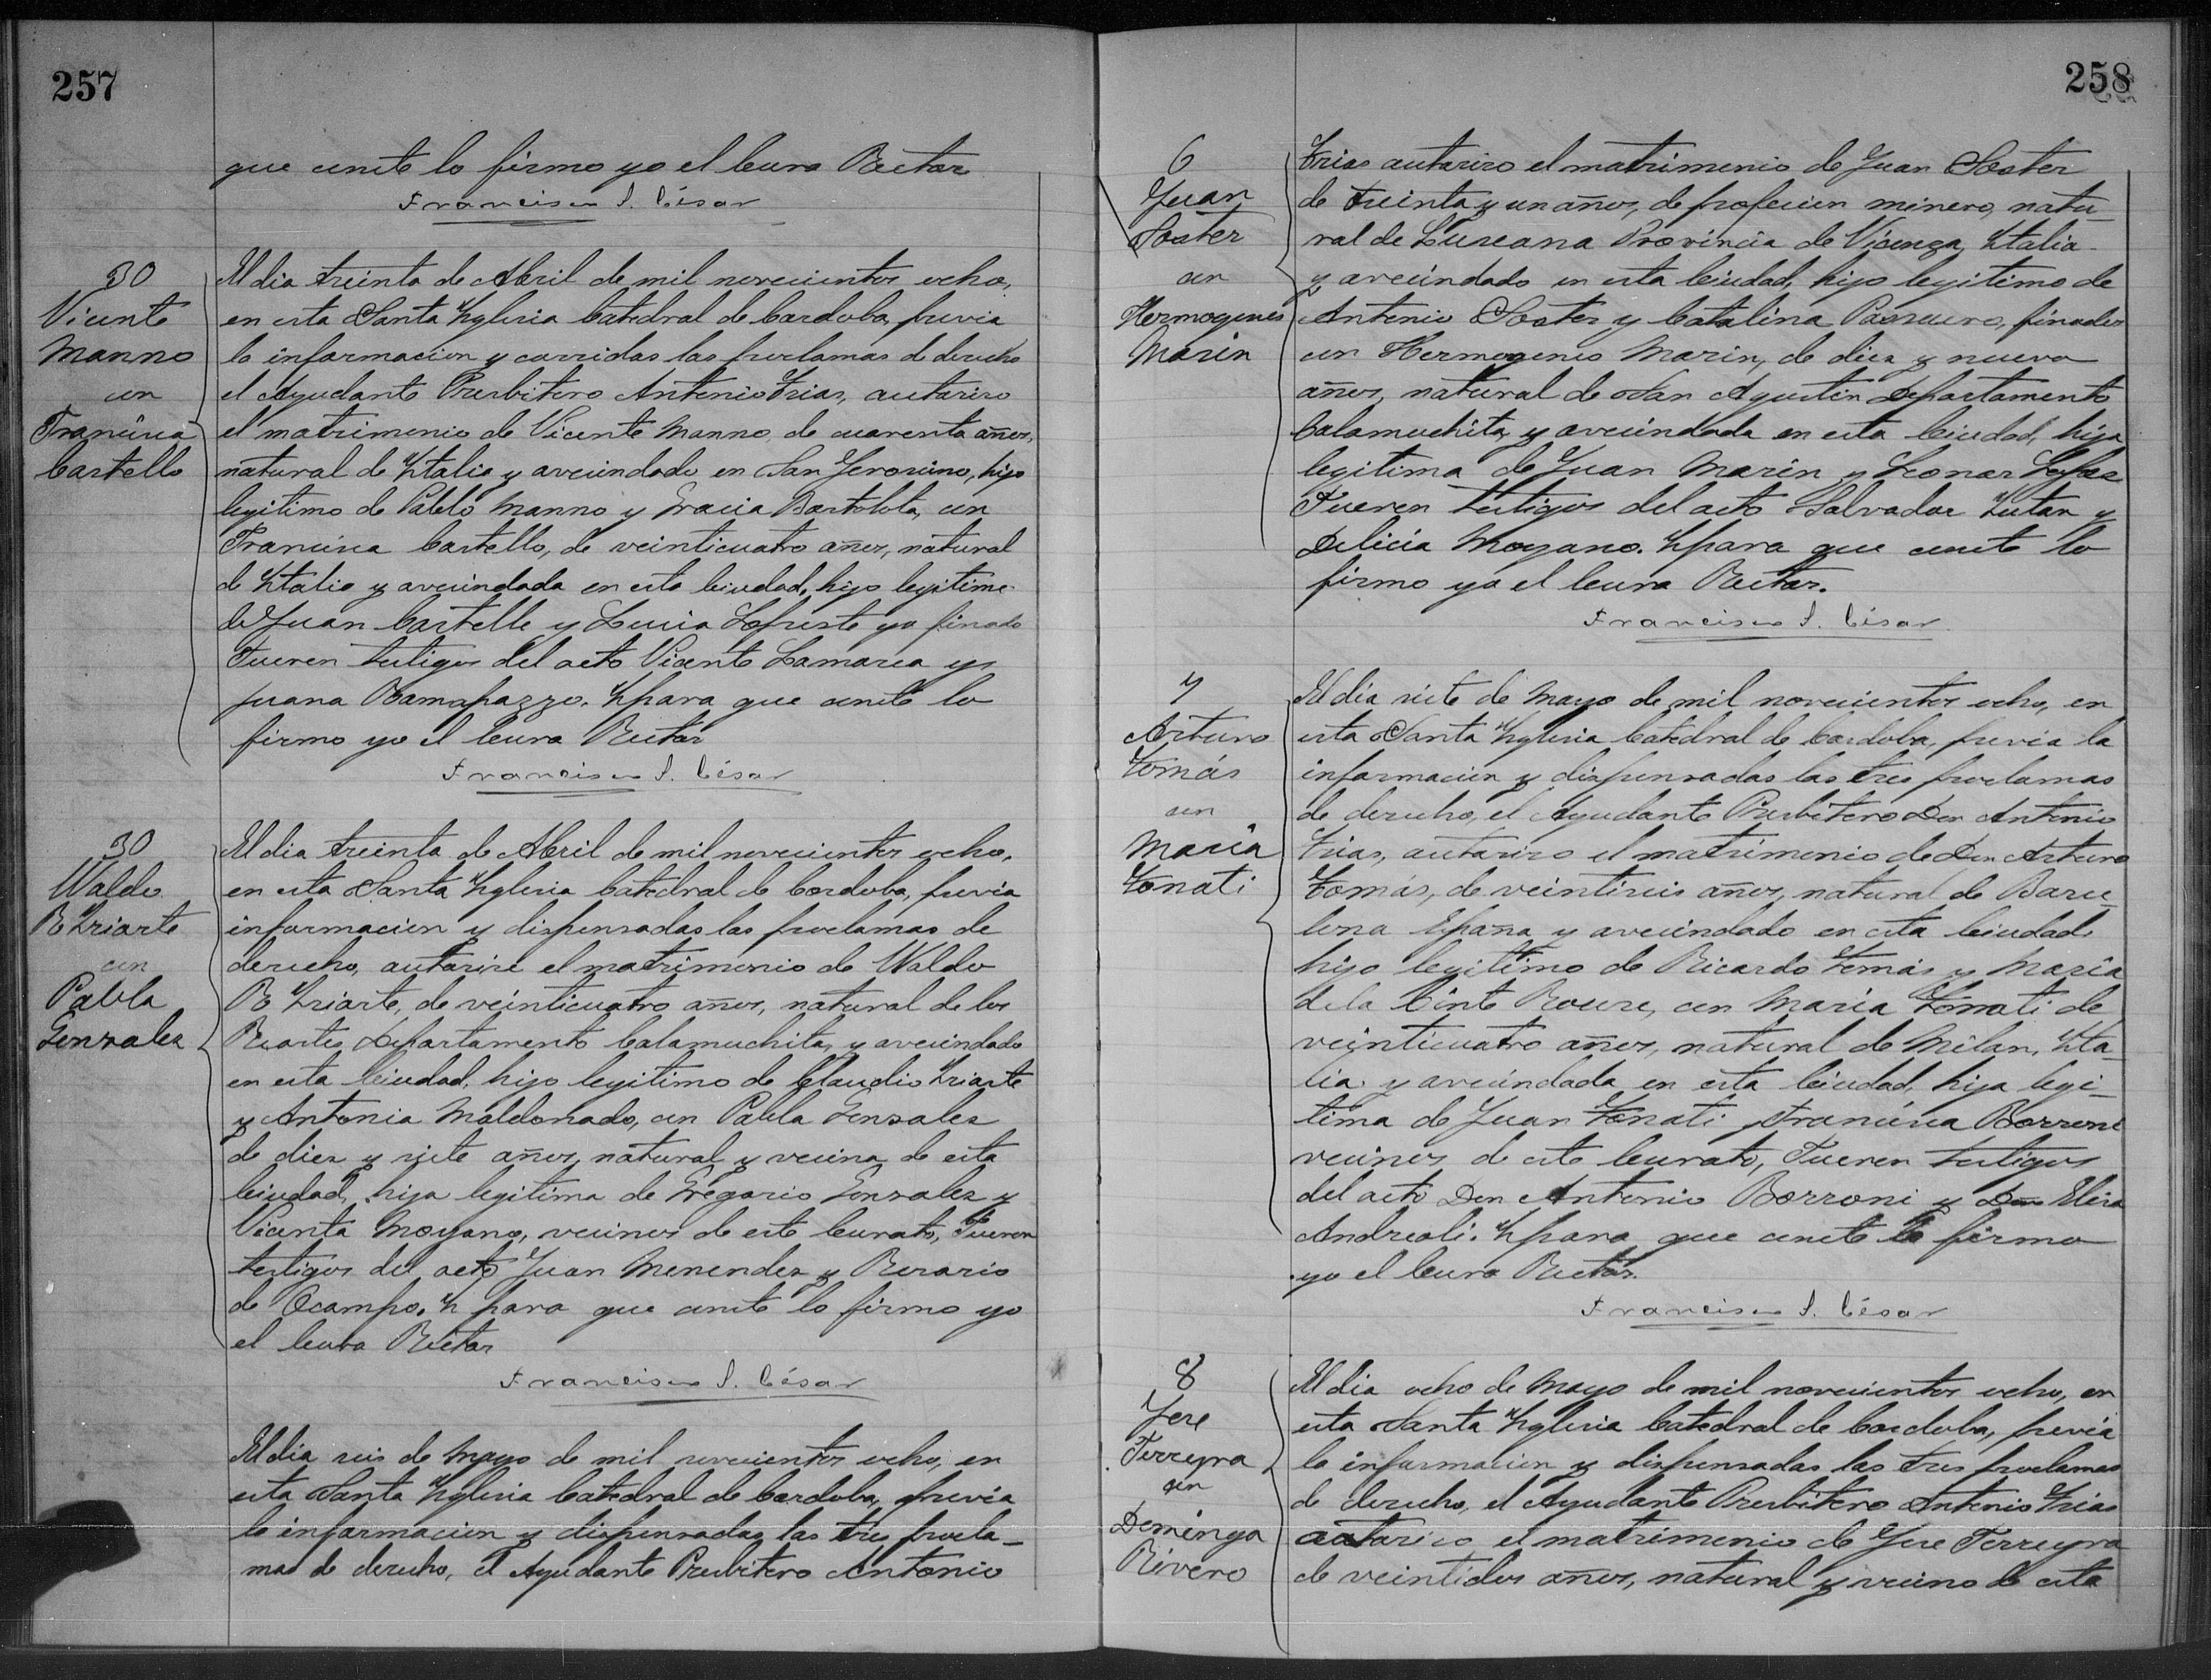 257
que conste lo firmo yo el Cura Rector
Francisco S. César
30
Vicente
Manno
con
Francisca
Castello
El dia treinta de Abril de mil novecientos ocho,
en esta Santa Yglesia Catedral de Cordoba, previa
la informacion y corridas las proclamas de derecho
el Ayudante Presbitero Antonio Frias, autorizo
el matrimonio de Vicente Manno, de cuarenta años,
natural de Ytalia y avecindado en San Geronimo, hijo
legitimo de Pablo Manno y Gracia Bartolota, con
Francisca Castello, de veinticuatro años, natural
de Ytalia y avecindada en esta Ciudad, hija legitima
de Juan Castello y Lucia Lopreste ya finado
Fueron testigos del acto Vicente Lamarca y
Juana Ramapazzo. Y para que conste lo
firmo yo el Cura Rector
Francisco S. César
30
Waldo
R Yriarte
con
Pabla
Gonzalez
El dia treinta de Abril de mil novecientos ocho,
en esta Santa Yglesia Catedral de Cordoba, previa
informacion y dispensadas las proclamas de
derecho, autorice el matrimonio de Waldo
R Yriarte, de veinticuatro años, natural de los
Reartes Departamento Calamuchita, y avecindado
en esta Ciudad, hijo legitimo de Claudio Yriarte
y Antonia Maldonado, con Pabla Gonzalez
de diez y siete años, natural y vecina de esta
Ciudad, hija legitima de Gregorio Gonzalez y
Vicenta Moyano, vecinos de este Curato, Fueron
testigos del acto Juan Menendez y Rosario
de Ocampo. Y para que conste lo firmo yo
el Cura Rector
Francisco S. César
El dia seis de Mayo de mil novecientos ocho, en
esta Santa Yglesia Catedral de Cordoba, previa
la informacion y dispensadas las tres procla-
mas de derecho, el Ayudante Presbitero Antonio
258
6
Juan
Soster
con
Hermogenes
Marin
Frias autorizo el matrimonio de Juan Soster
de treinta y un años, de profecion minero, natu-
ral de Luseana Provincia de Vicenza, Ytalia
y avecindado en esta Ciudad, hijo legitimo de
Antonio Soster y Catalina finados
con Hermogenes Marin, de diez y nueve
años, natural de San Agustin Departamento
Calamuchita, y avecindada en esta Ciudad, hija
legitima de Juan Marin y Leonor Lopez
Fueron testigos del acto Salvador y
Delicia Moyano. Y para que conste lo
firmo yo el Cura Rector.
Francisco S. César
7
Arturo
Tomás
con
Maria
Tonati
El dia siete de Mayo de mil novecientos ocho, en
esta Santa Yglesia Catedral de Cordoba, previa la
informacion y dispensadas las tres proclamas
de derecho, el Ayudante Presbitero Don Antonio
Frias, autorizo el matrimonio de Don Arturo
Tomás, de veintiseis años, natural de Barce-
lona España y avecindado en esta Ciudad,
hijo legitimo de Ricardo Tomás y Maria
de la Cinte Roure, con Maria Tonati de
veinticuatro años, natural de Milan, Yta-
lia y avecindada en esta Ciudad, hija legi-
tima de Juan Tonati Francisca Borroni
vecinos de este Curato, Fueron testigos
del acto Don Antonio Borroni y Doña Elisa
Andreoli. Y para que conste lo firmo
yo el Cura Rector.
Francisco S. César
8
Jose
Ferreyra
con
Dominga
Rivero
El dia ocho de Mayo de mil novecientos ocho, en
esta Santa Yglesia Catedral de Cordoba, previa
la informacion y dispensadas las tres proclamas
de derecho, el Ayudante Presbitero Antonio Frias
autorizo el matrimonio de Jose Ferreyra
de veintidos años, natural y vecino de esta